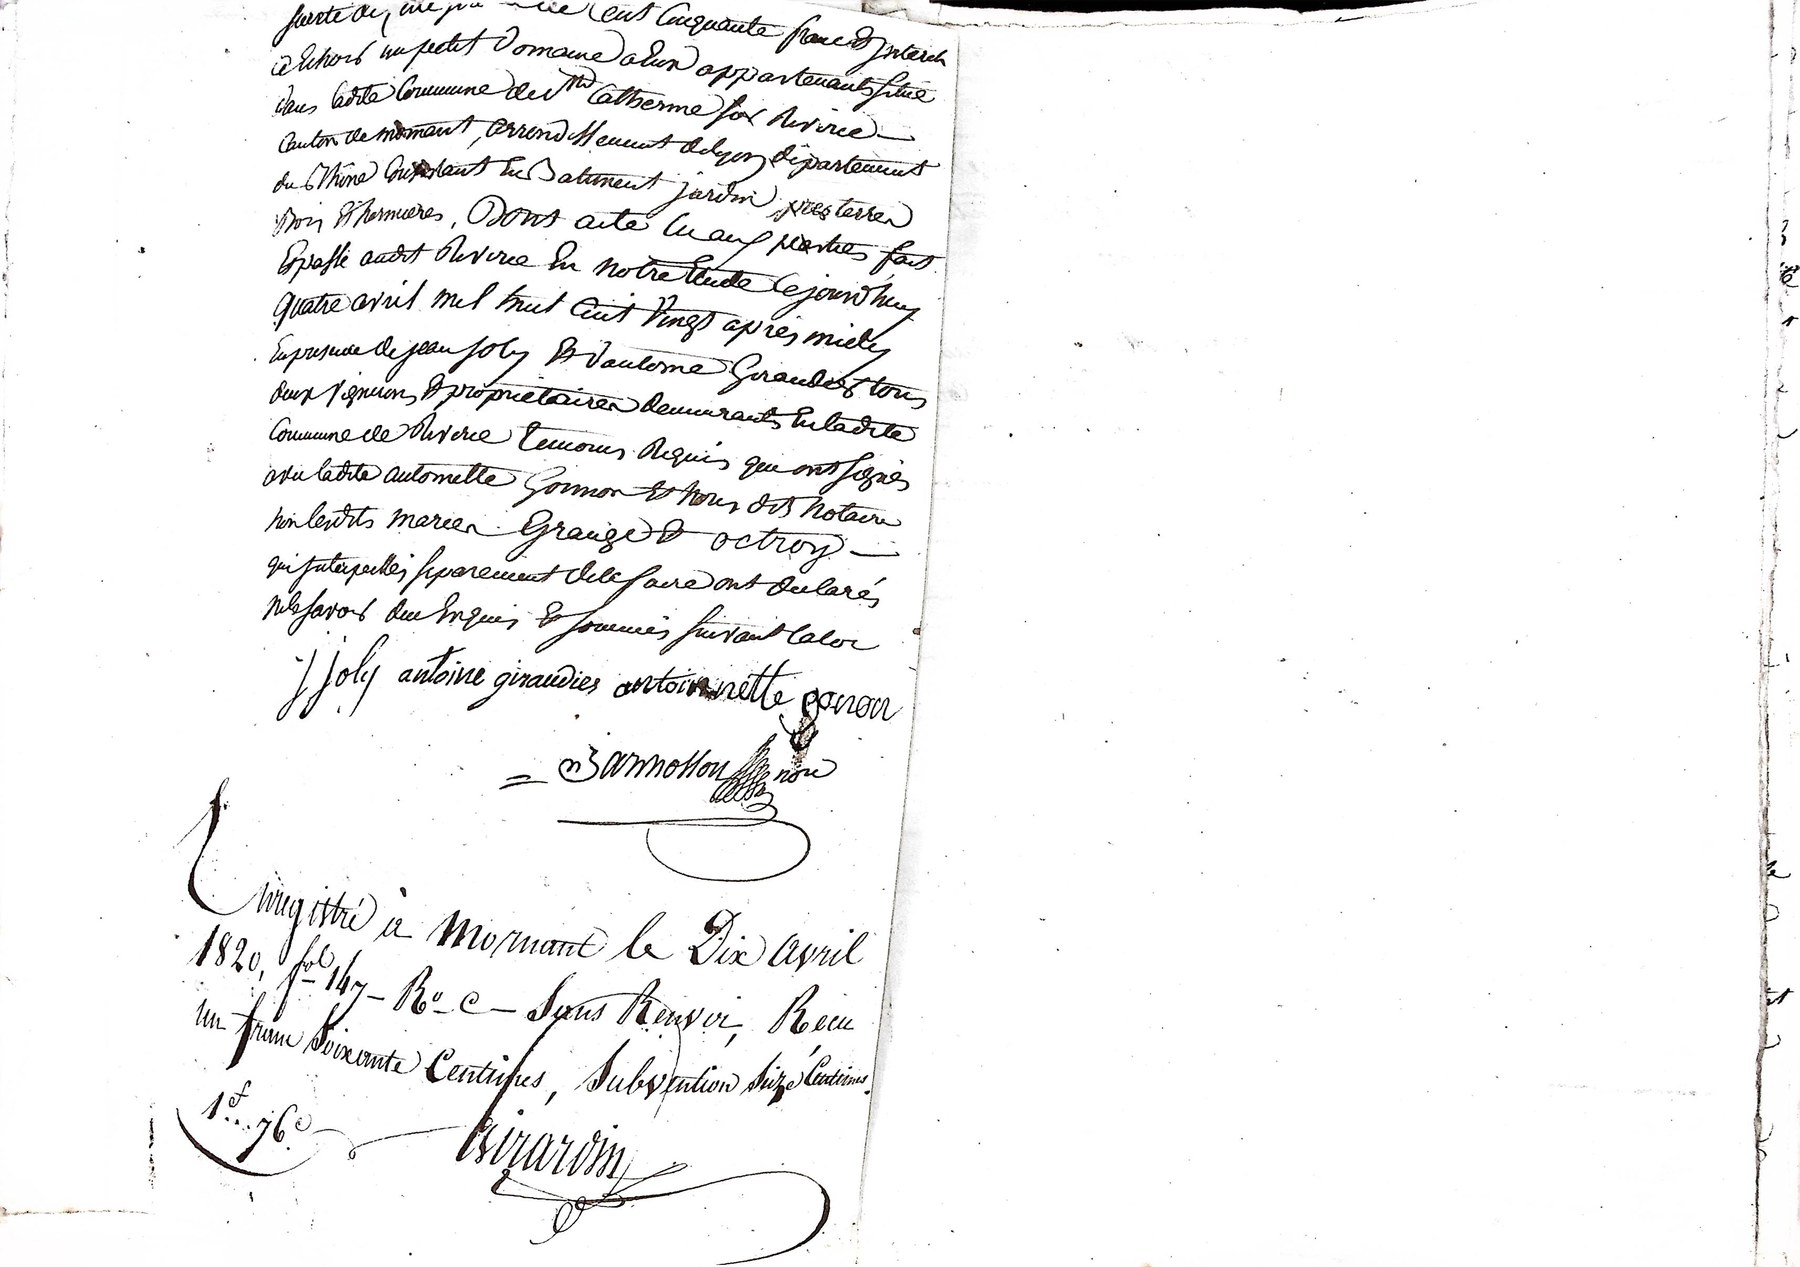 cent cinquante francs & interets
un petit Domaine a Eux appartenants situé
dans ladite Commune de Ste Catherine sur Riverie
Canton de mornant, arrondissement de lyon, département
du Rhône Consistant En Batiment jardin pres terres
Bois & hermieres. Dont acte lu aux parties fait
Et passé audit Riverie En notre Etude Cejourd'huy
quatre avril mil huit Cent Vingt après midy
En presence de jean Joly & d'antoine Giraudier tous
deux vignerons & proprietaires demeurants En ladite
Commune de Riverie temoins Requis qui ont signés
avec ladite antoinette Gonnon Et Nous dit Notaire
non lesdits mariés Grange & octroy
qui Interpellés separement de le faire ont declarés
ne le savoir de ce Enquis & sommés suivant la loi
j joly antoine giraudier antoinnette gonon
= Barmosson nre
Enregistré à Mornant le Dix avril
1820, fol 147 - Ro - C - Sans Renvoi, Reçu
un franc Soixante Centimes, Subvention Seize Centimes.
1f..76c.
Girardin